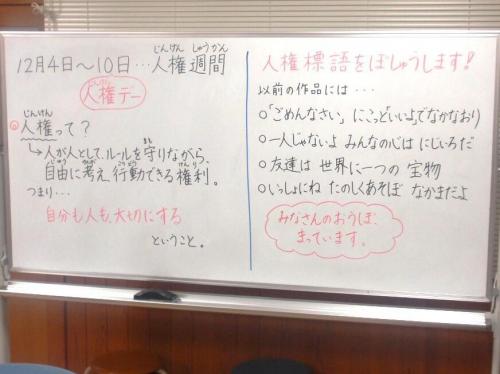 12月4日～10日…人権週間
じんけん しゅうかん
人権デー
じんけん
人権って?
じんけん
↳人が人として、ルールを守りながら、
まも
自由に考え、行動できる権利。
じゆう かんが こうどう けんり
つまり…
自分も人も、大切にする
ということ。
人権標語をぼしゅうします!
以前の作品には…
○「ごめんなさい」にこっといいよ、でなかなおり
○一人じゃないよ みんなの心は にじいろだ
○友達は 世界に一つの 宝物
○いっしょにね たのしくあそぼ なかまだよ
みなさんのおうぼ、
まっています。